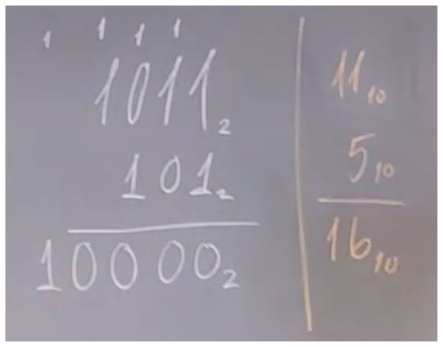 1 1 1 1
1011₂
101₂
10000₂
11₁₀
5₁₀
16₁₀